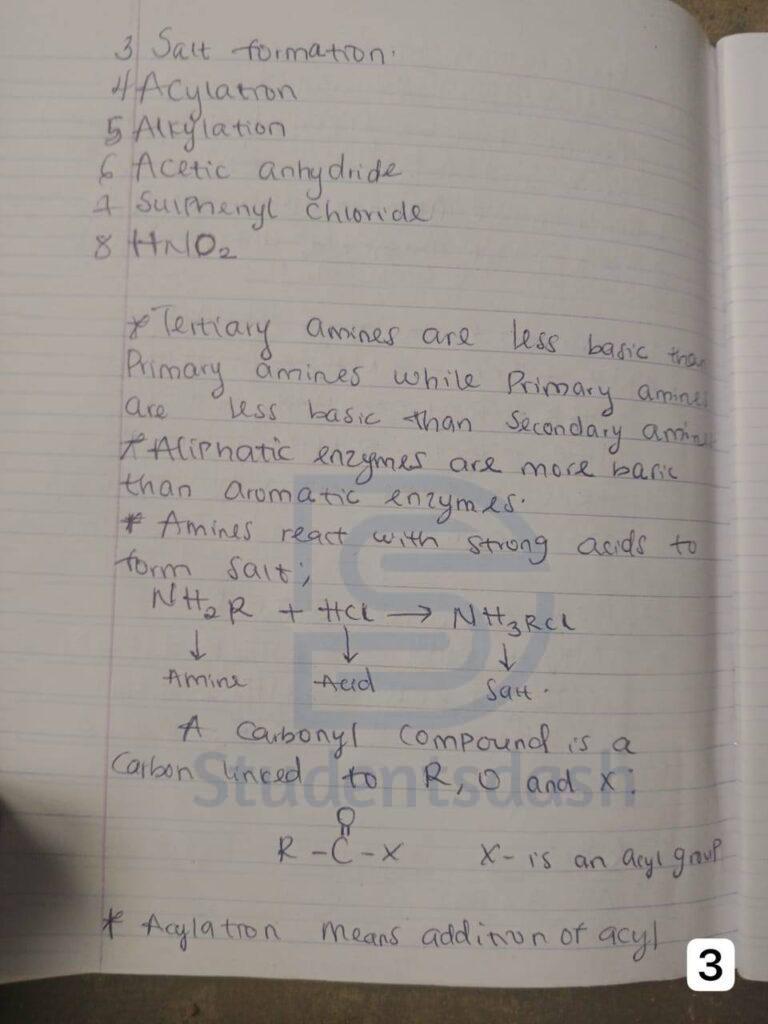 3 Salt formation.
4 Acylation
5 Alkylation
6 Acetic anhydride
7 Sulphenyl Chloride
8 HNO2
* Tertiary amines are less basic than
Primary amines while Primary amines
are less basic than Secondary amines
* Aliphatic enzymes are more basic
than aromatic enzymes.
* Amines react with strong acids to
form salt;
NH2R + HCl → NH3RCl
↓ ↓ ↓
Amine Acid Salt.
A Carbonyl Compound is a
Carbon linked to R, O and X:
Studentsdash
O
R - C - X X- is an acyl group
* Acylation means addition of acyl
3